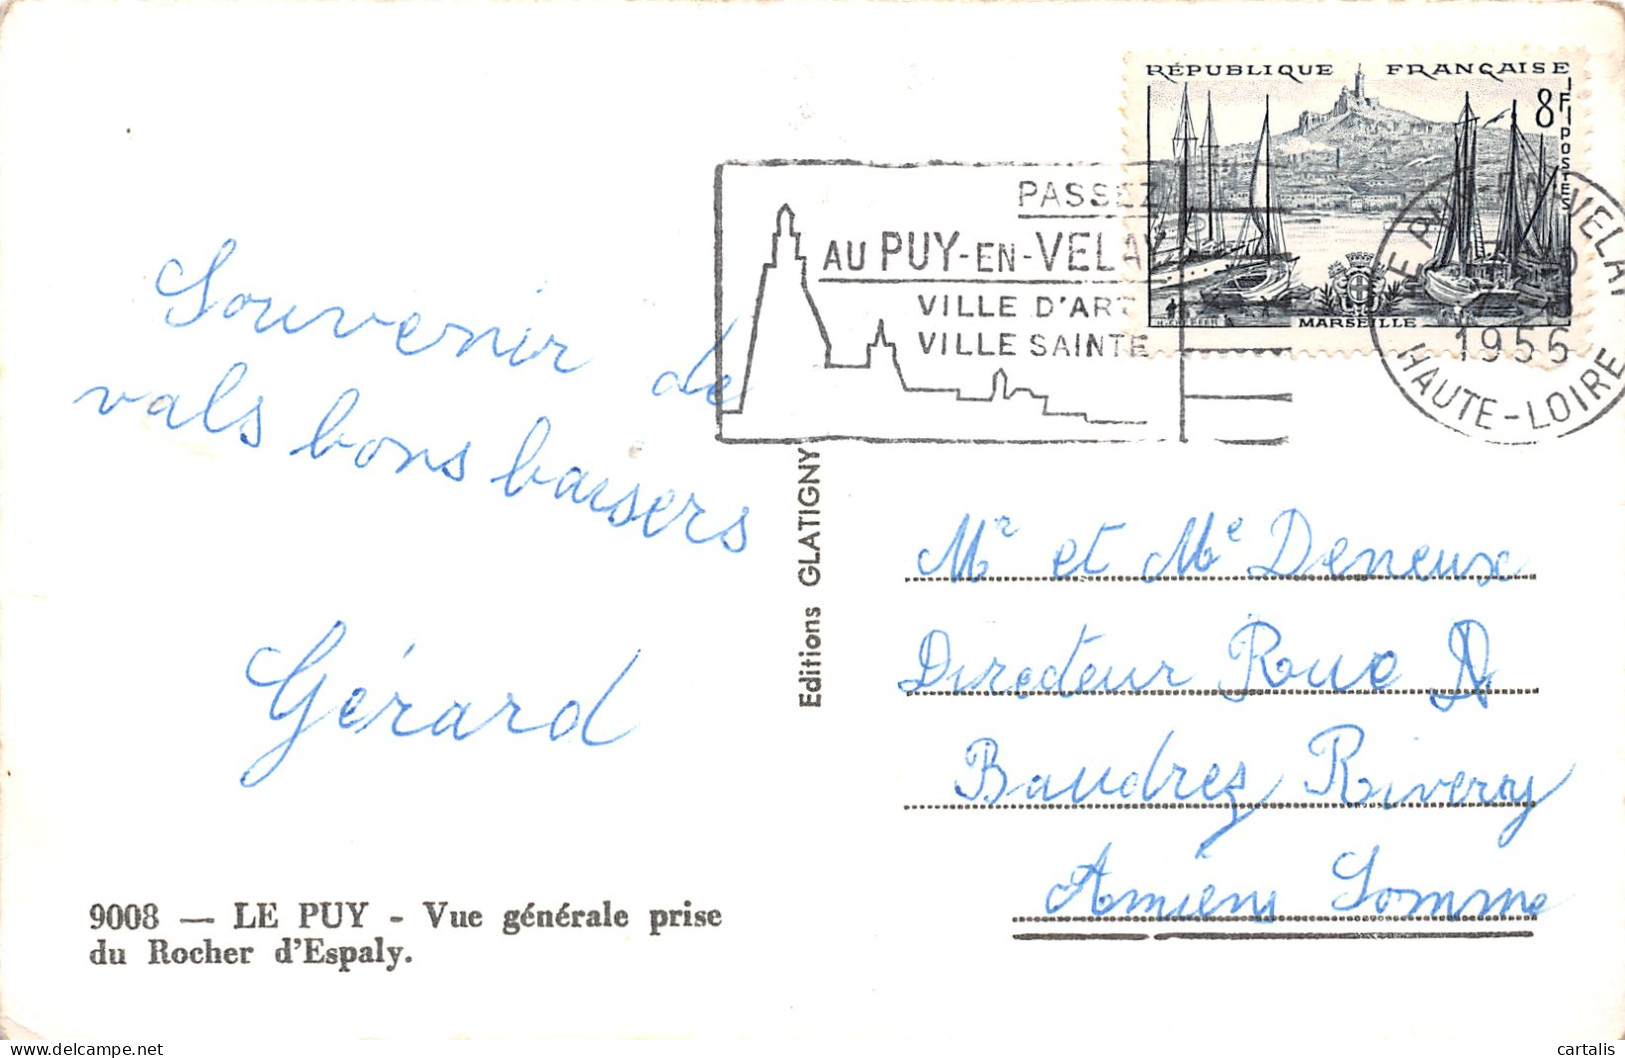 RÉPUBLIQUE FRANÇAISE
8F
POSTES
MARSEILLE
PASSEZ
AU PUY-EN-VELAY
VILLE D'ART
VILLE SAINTE
LE PUY-EN-VELAY
1956
HAUTE-LOIRE
Souvenir de
vals bons baisers
Gérard
Editions GLATIGNY
Mr et Me Deneux
Directeur Rue A
Baudrez Rivery
Amiens Somme
9008 — LE PUY - Vue générale prise
du Rocher d'Espaly.
cartalis